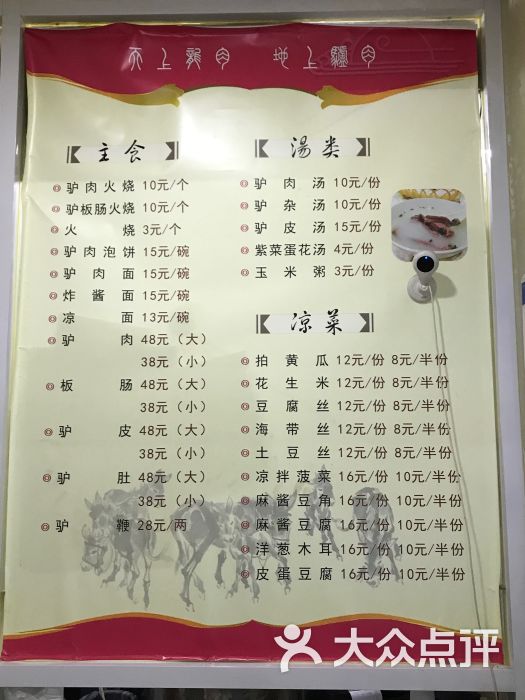 天上龍肉 地上驢肉
主食
驴肉火烧 10元/个
驴板肠火烧 10元/个
火烧 3元/个
驴肉泡饼 15元/碗
驴肉面 15元/碗
炸酱面 15元/碗
凉面 13元/碗
驴肉 48元（大）
38元（小）
板肠 48元（大）
38元（小）
驴皮 48元（大）
38元（小）
驴肚 48元（大）
38元（小）
驴鞭 28元/两
汤类
驴肉汤 10元/份
驴杂汤 10元/份
驴皮汤 15元/份
紫菜蛋花汤 4元/份
玉米粥 3元/份
凉菜
拍黄瓜 12元/份 8元/半份
花生米 12元/份 8元/半份
豆腐丝 12元/份 8元/半份
海带丝 12元/份 8元/半份
土豆丝 12元/份 8元/半份
凉拌菠菜 16元/份 10元/半份
麻酱豆角 16元/份 10元/半份
麻酱豆腐 16元/份 10元/半份
洋葱木耳 16元/份 10元/半份
皮蛋豆腐 16元/份 10元/半份
大众点评